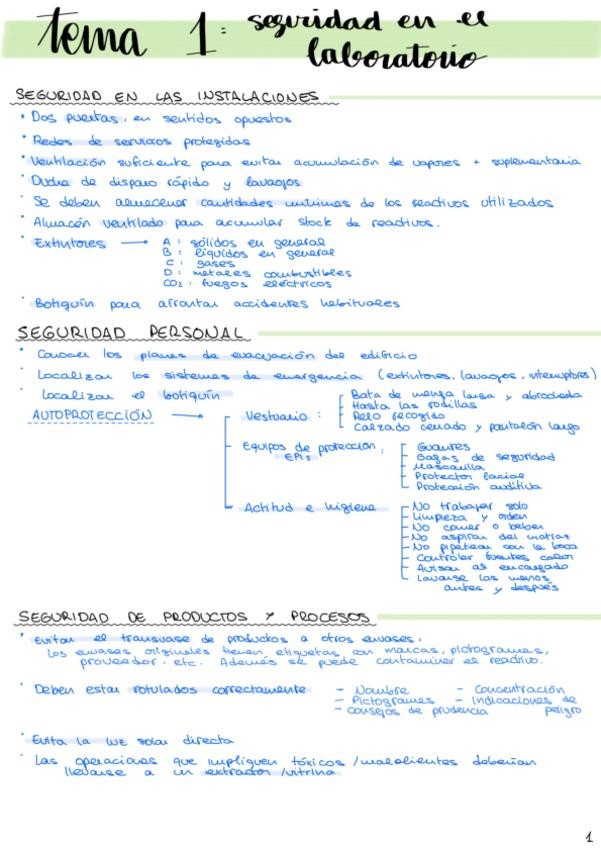 tema 1: seguridad en el
laboratorio
SEGURIDAD EN LAS INSTALACIONES
• Dos puertas, en sentidos opuestos
• Redes de servicios protegidas
• Ventilación suficiente para evitar acumulación de vapores + suplementaria
• Ducha de disparo rápido y lavaojos
• Se deben almacenar cantidades mínimas de los reactivos utilizados
• Almacén ventilado para acumular stock de reactivos.
• Extintores → A: sólidos en general
B: líquidos en general
C: gases
D: metales combustibles
CO2: fuegos eléctricos
• Botiquín para afrontar accidentes habituales
SEGURIDAD PERSONAL
• Conocer los planes de evacuación del edificio
• Localizar los sistemas de emergencia (extintores, lavaojos, interruptores)
• Localizar el botiquín
AUTOPROTECCIÓN → Vestuario:
Bata de manga larga y abrochada
Hasta las rodillas
Pelo recogido
Calzado cerrado y pantalón largo
Equipos de protección:
EPIs
Guantes
Gafas de seguridad
Mascarilla
Protector facial
Protección auditiva
Actitud e higiene
No trabajar solo
Limpieza y orden
No comer o beber
No aspirar del matraz
No pipetear con la boca
Controlar fuentes calor
Avisar al encargado
Lavarse las manos
antes y después
SEGURIDAD DE PRODUCTOS Y PROCESOS
• Evitar el transvase de productos a otros envases:
Los envases originales tienen, etiquetas con marcas, pictogramas,
proveedor. etc. Además se puede contaminar el reactivo.
• Deben estar rotulados correctamente – Nombre – Concentración
– Pictogramas – Indicaciones de
– consejos de prudencia peligro
• Evita la luz solar directa
• Las operaciones que impliquen tóxicos / malolientes deberían
llevarse a un extractor / vitrina
1